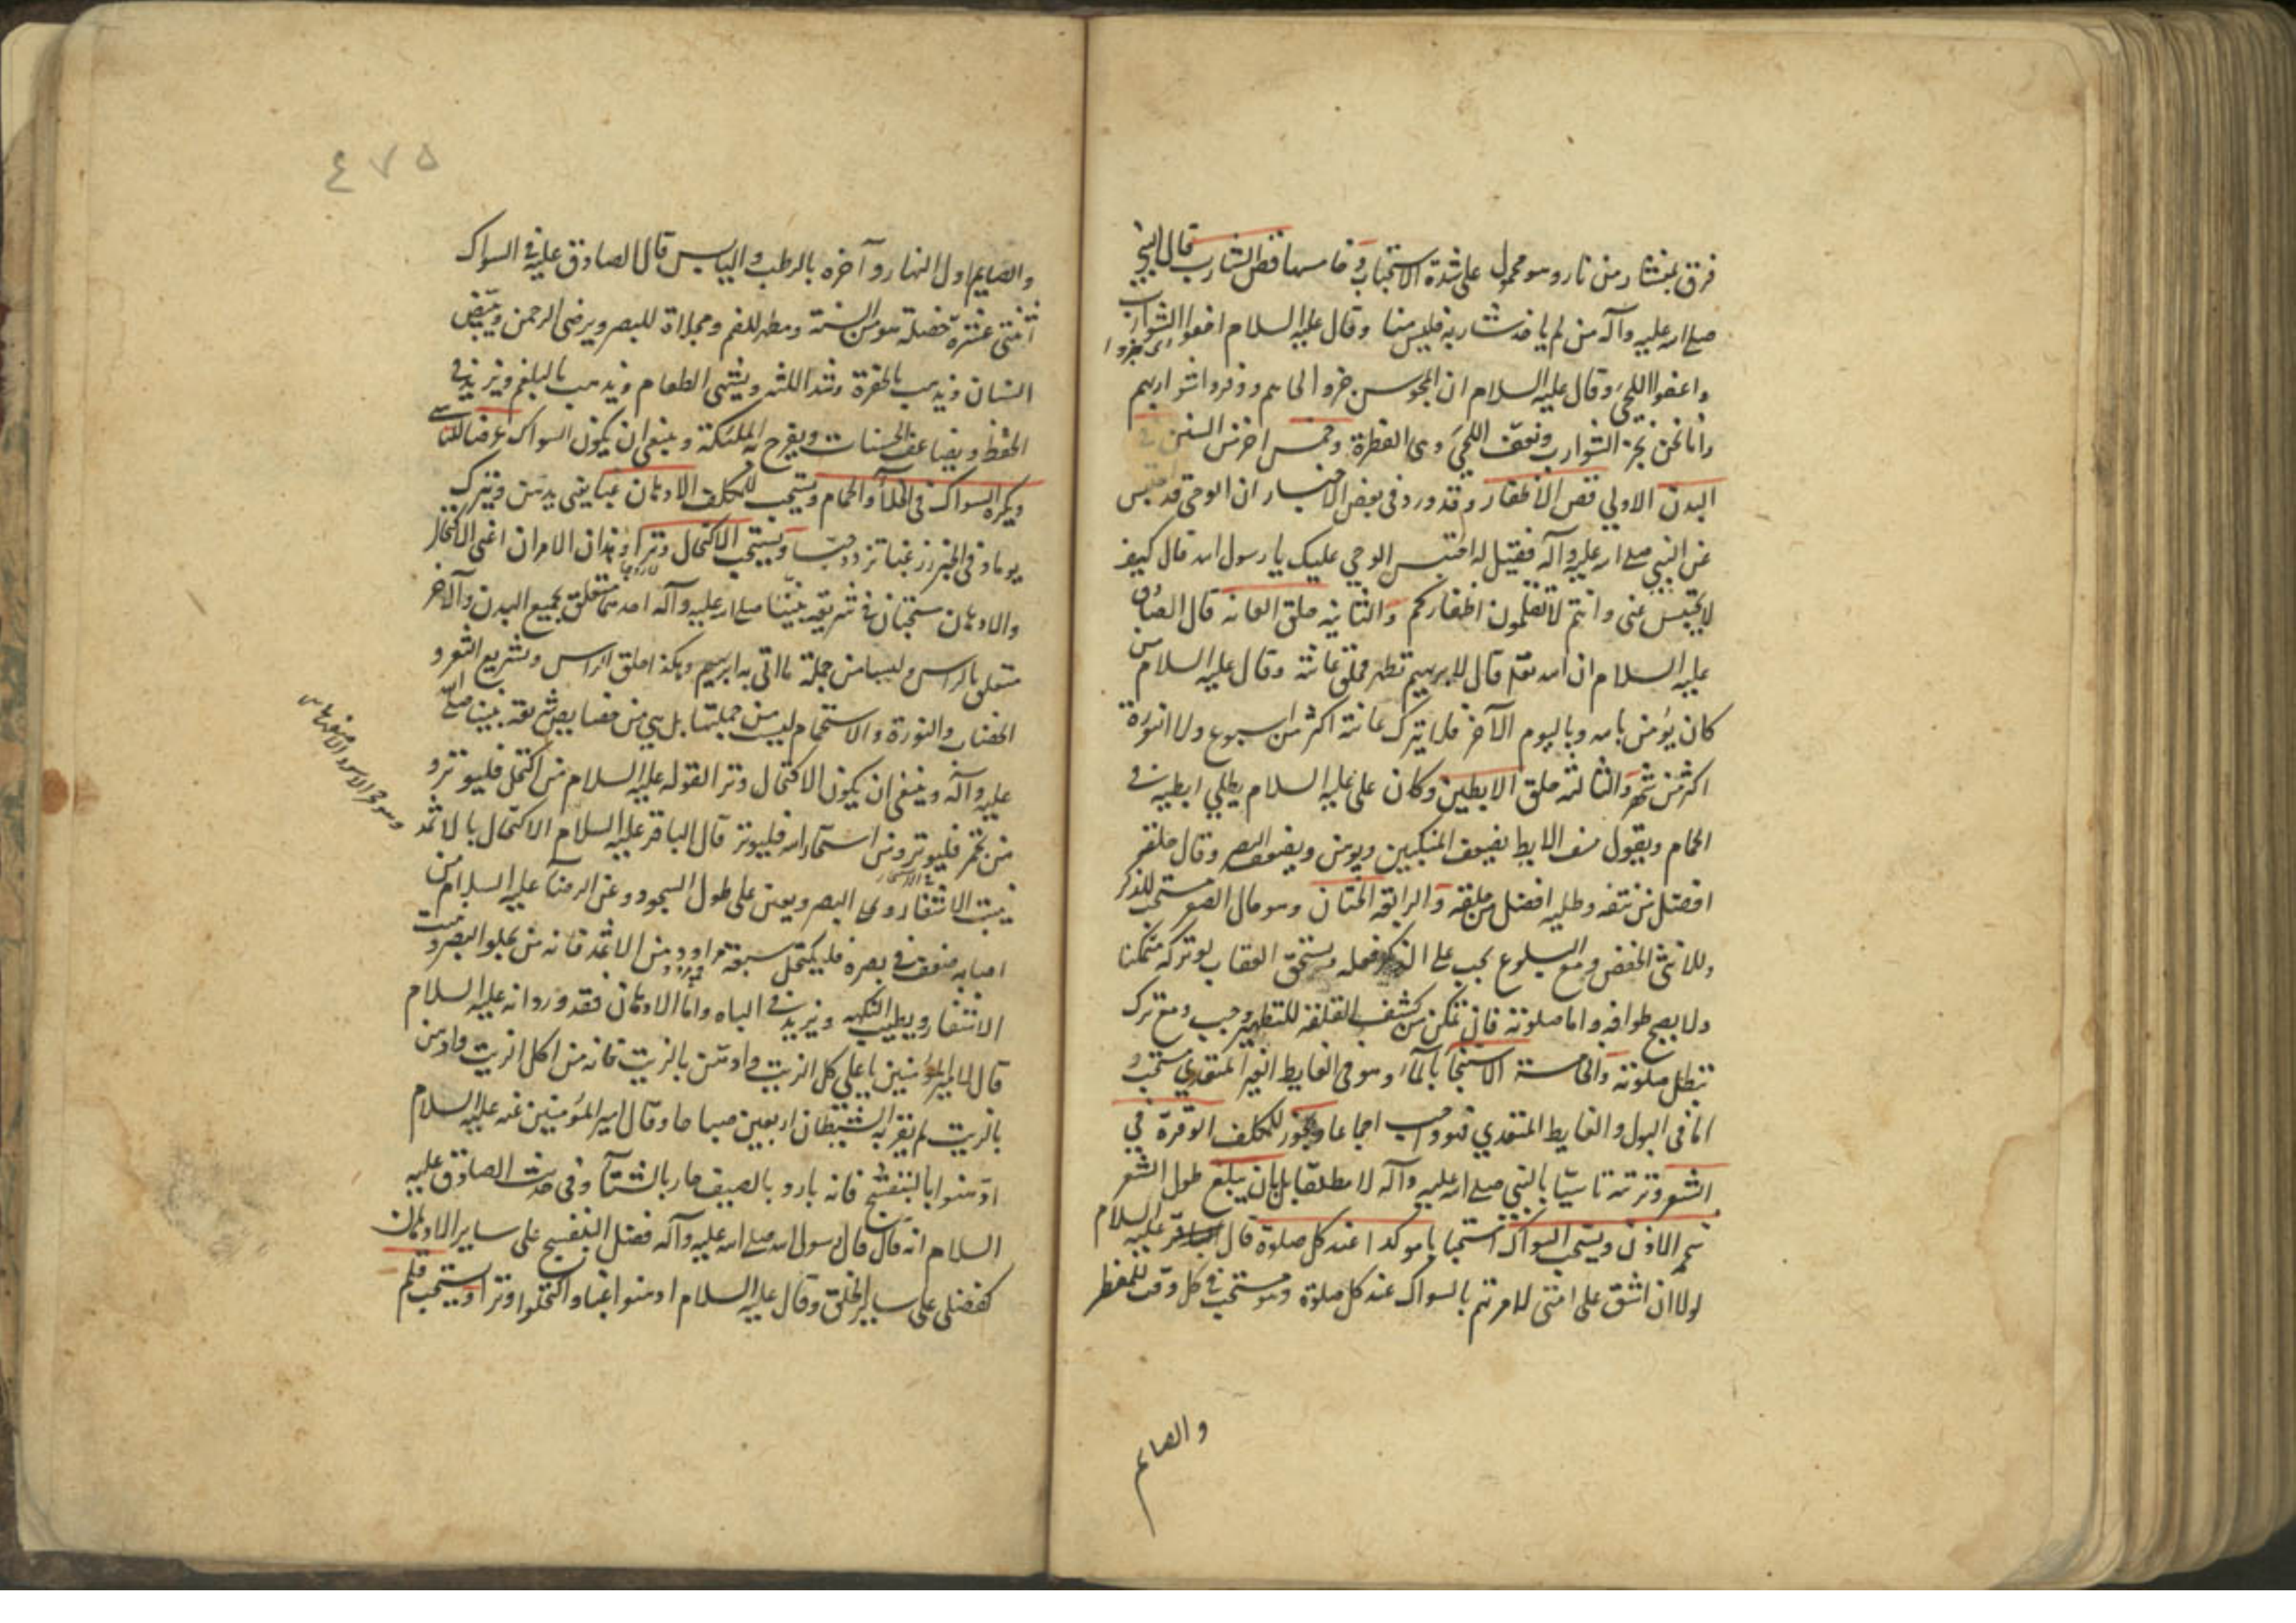 فرق بمنشار من نار وهو محمول على شدة الاستحباب وخامسها قص الشارب قال النبي
صلى الله عليه وآله من لم ياخذ شاربه فليس منا وقال عليه السلام احفوا الشوارب
اى جزوا
واعفوا اللحى وقال عليه السلام ان المجوس جزوا لحاهم ووفروا شواربهم
وانا نحن نجز الشوارب ونعفى اللحى وهى الفطرة وخمس اخر من السنن فى
البدن الاولي قص الاظفار وقد ورد فى بعض الاخبار ان الوحى قد احتبس
عن النبي صلى الله عليه وآله فقيل له احتبس الوحي عليك يا رسول الله قال كيف
لا يحتبس عنى وانتم لا تقلمون اظفاركم والثانيه حلق العانه قال الصادق
عليه السلام ان الله تعالى قال لابرهيم تطهر فحلق عانته وقال عليه السلام من
كان يؤمن بالله وباليوم الآخر فلا يترك عانته اكثر من اسبوع ولا النورة
اكثر من شهر والثالثه حلق الابطين وكان على عليه السلام يطلي ابطيه فى
الحمام ويقول نتف الابط يضعف المنكبين ويوهن ويضعف البصر وقال حلقه
افضل من نتفه وطليه افضل من حلقه والرابعه الختان وهو حال الصغر مستحب للذكر
وللانثى الخفض ومع البلوغ يجب على الذكر فعله ويستحق العقاب لو تركه متمكنا
ولا يصح طوافه واما صلوته فان تمكن من كشف القلفه للتطهير وجب ومع ترك
تبطل صلوته والخامسة الاستنجا بالمآء وهو فى الغايط الغير المتعدي مستحب و
اما فى البول والغايط المتعدي فهو واجب اجماعا ويجوز للمكلف الوفرة فى
الشعر وتربيته تاسيّا بالنبي صلى الله عليه وآله لا مطلقا بل بان يبلغ طول الشعر
شحم الاذن ويستحب السواك استحبابا موكدا عند كل صلوة قال عليه السلام
لولا ان اشق على امتى لامرتهم بالسواك عند كل صلوة وهو مستحب فى كل وقت للمفطر
والصايم
٤٧٥
والصايم اول النهار وآخره بالرطب واليابس قال الصادق عليه فى السواك
اثنتى عشرة خصلة هو من السنة ومطهر للفم ومجلاة للبصر ويرضى الرحمن ويبيّض
الاسنان ويذهب بالحفرة ويشد اللثه ويشهى الطعام ويذهب بالبلغم ويزيد فى
الحفظ ويضاعف الحسنات ويفرح به الملئكة وينبغى ان يكون السواك عرضا للتاسى
ويكره السواك فى الخلآء والحمام ويستحب للمكلف الادهان غبا يعنى يدهن ويترك
يوما وفى الخبر زر غبا تزدد حبّا ويستحب الاكتحال وترا وهذان الامران اعنى الاكتحال
والادهان مستحبان فى شريعة نبينا صلى الله عليه وآله احدهما متعلق بجميع البدن والآخر
متعلق بالراس وليسا من جملة ما اتى به ابرهيم وهكذا حلق الراس وتشريع الشعر و
الخضاب والنورة والاستحمام ليس من جملتها بل هي من خصايص شريعة نبينا صلى الله
عليه وآله وينبغى ان يكون الاكتحال وترا لقوله عليه السلام من اكتحل فليوتر و
من تجمر فليوتر ومن استخار الله فليوتر قال الباقر عليه السلام الاكتحال بالاثمد
وهو حجر الاسود الاصفهانى
ينبت الاشفار ويحد البصر ويعين على طول السجود وعن الرضا عليه السلام من
اصابه ضعف فى بصره فليكتحل سبعة مراود من الاثمد فانه من يجلو البصر وينبت
الاشفار ويطيب النكهه ويزيد فى الباه واما الادهان فقد ورد انه عليه السلام
قال لامير المؤمنين يا علي كل الزيت وادهن بالزيت فانه من اكل الزيت وادهن
بالزيت لم يقربه الشيطان اربعين صباحا وقال امير المؤمنين عنه عليه السلام
ادّهنوا بالبنفسج فانه بارد بالصيف حار بالشتآء وفى حديث الصادق عليه
السلام انه قال قال رسول الله صلى الله عليه وآله فضل البنفسج على ساير الادهان
كفضلى على ساير الخلق وقال عليه السلام ادهنوا غبا واكتحلوا وترا ويستحب قلم